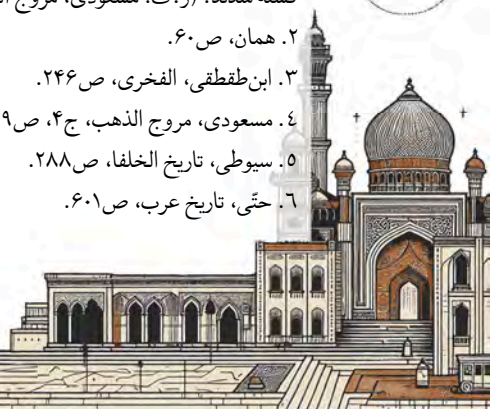 شدند. (ر.ک: مسعودی، مروج
۲. همان، ص۶۰.
۳. ابن‌طقطقی، الفخری، ص۲۴۶.
٤. مسعودی، مروج الذهب، ج۴، ص۹
٥. سیوطی، تاریخ الخلفا، ص۲۸۸.
٦. حتّی، تاریخ عرب، ص۶۰۱.